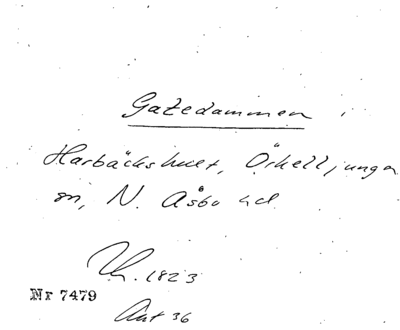 Gatedammen
Harbäckshult, Örkelljunga
sn, N. Åsbo hd
Th. 1823
Nr 7479
Ant 36